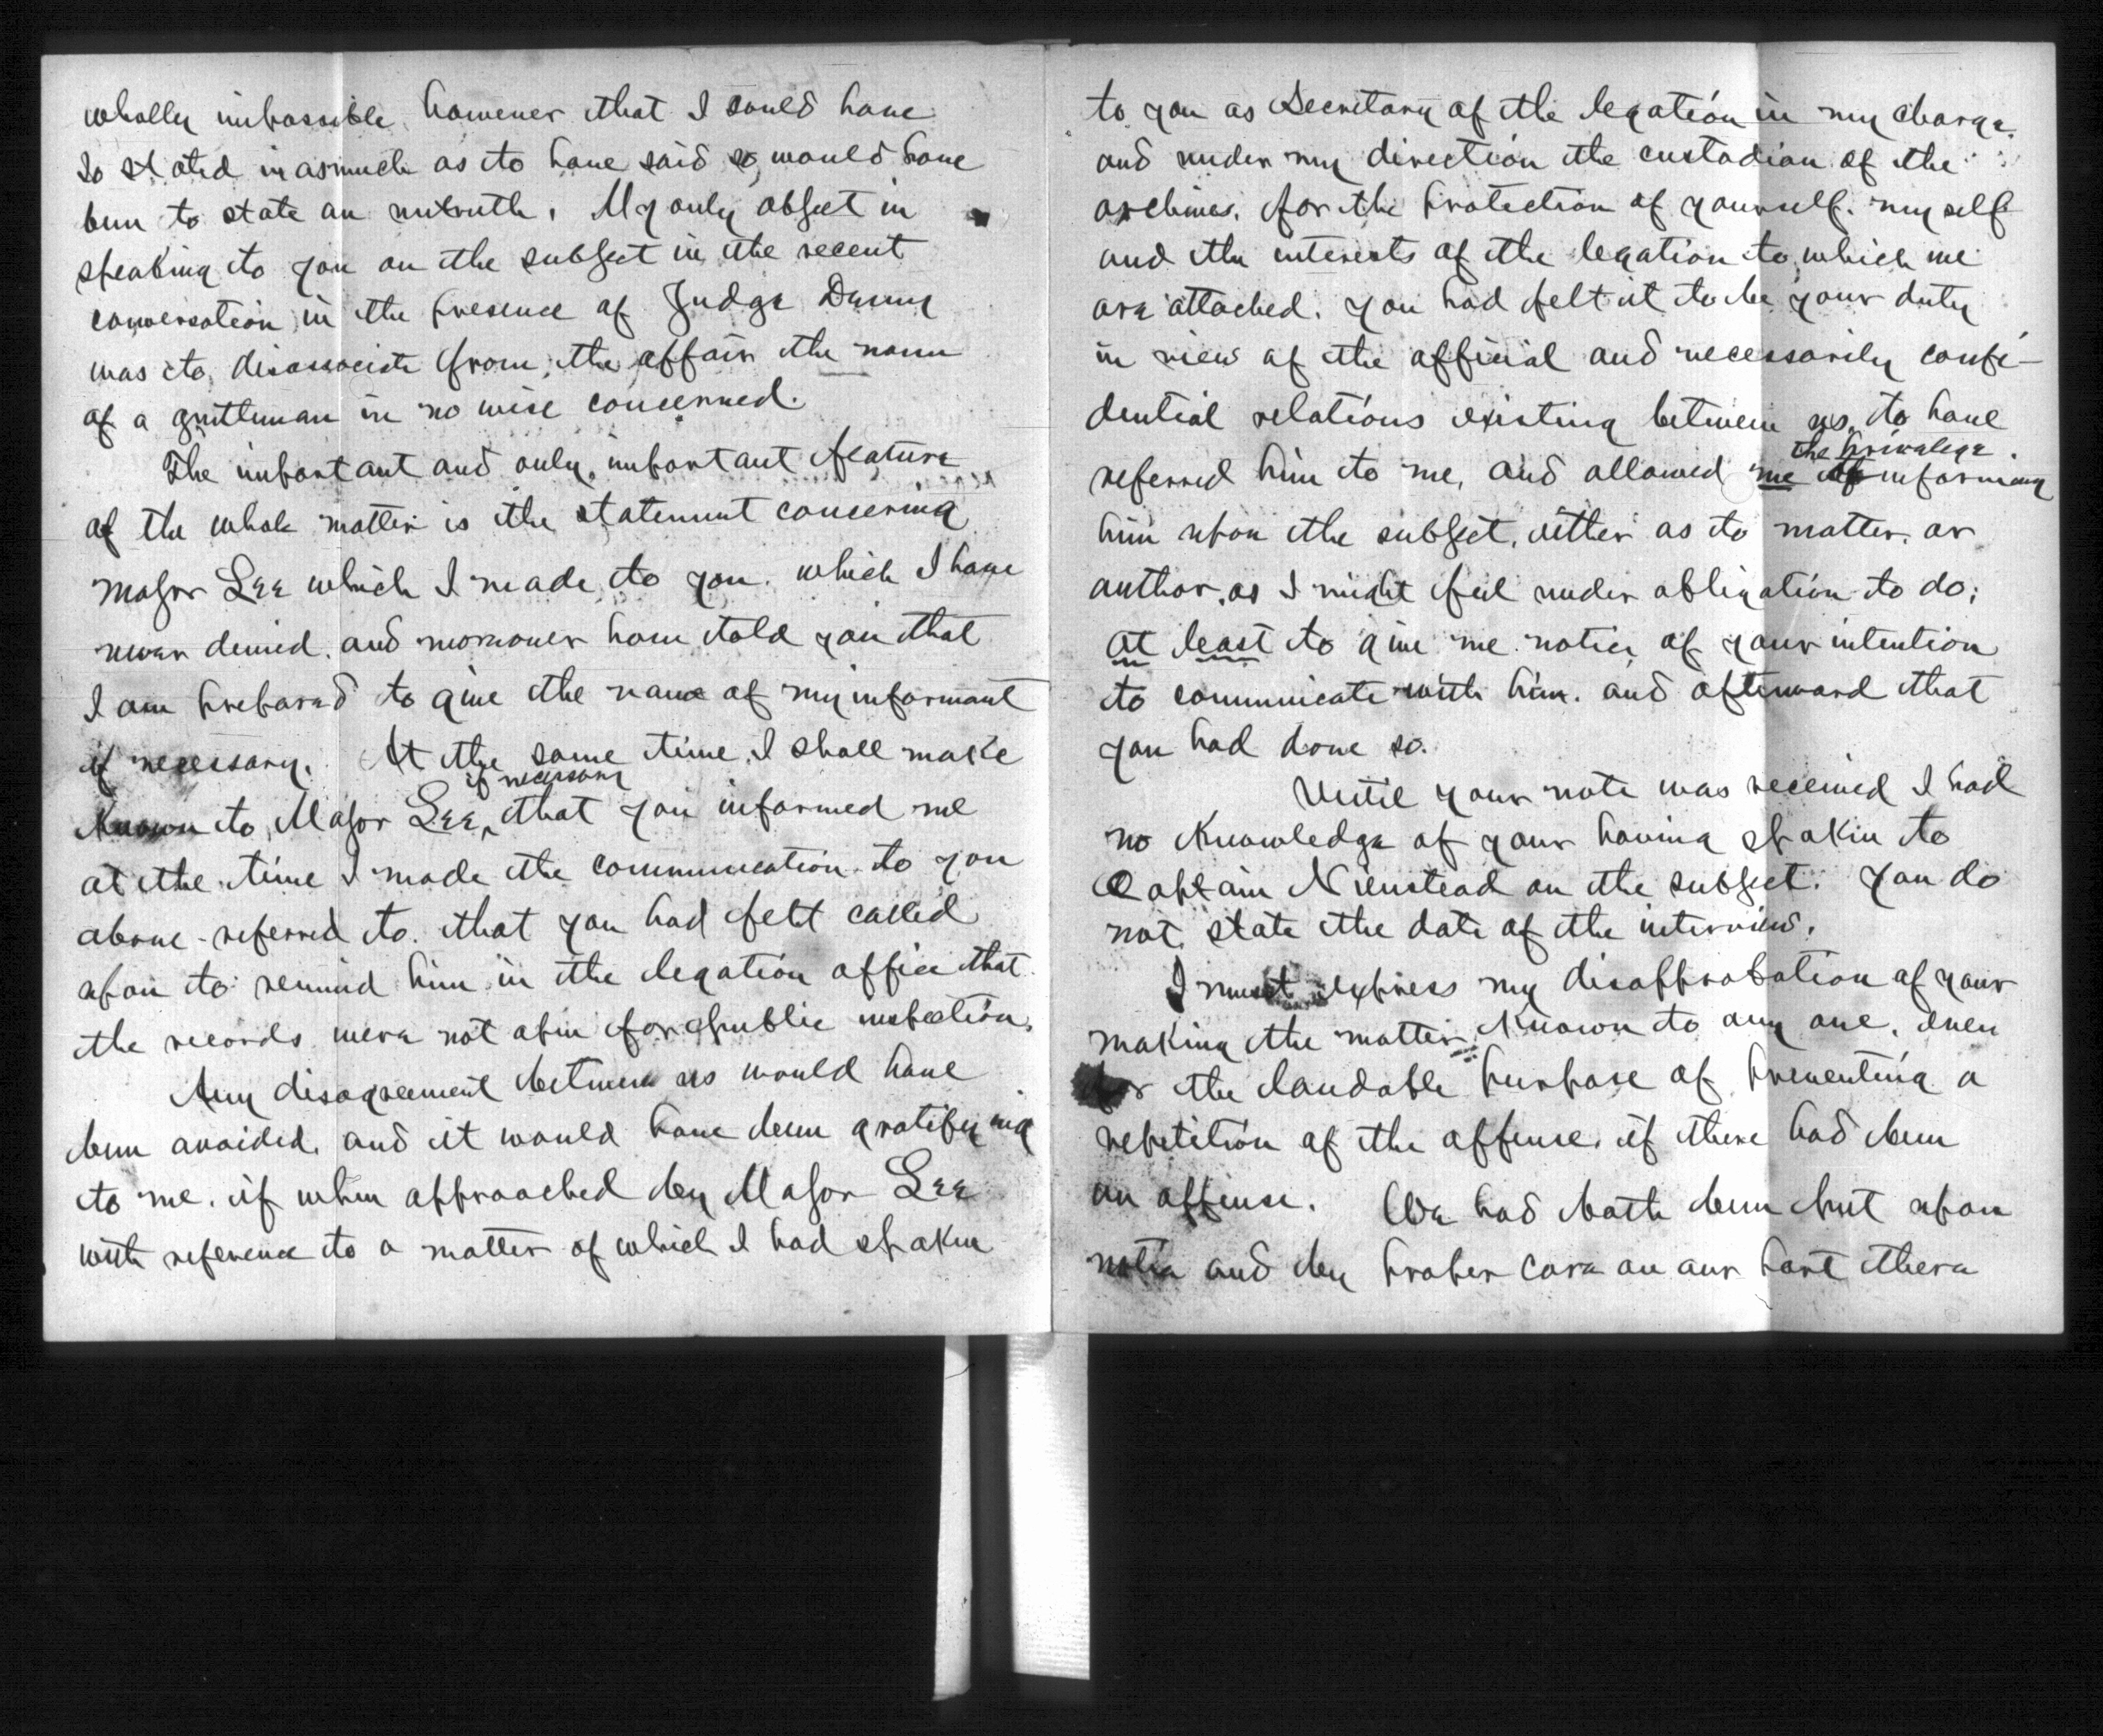 wholly impossible, however that I could have
so stated inasmuch as to have said so, would have
been to state an untruth. My only object in
speaking to you on the subject in the recent
conversation in the presence of Judge Denny
was to disassociate from the affair the name
of a gentleman in no wise concerned.
The important and only important feature
of the whole matter is the statement concerning
Major Lee which I made to you. which I have
never denied. and moreover have told you that
I am prepared to give the name of my informant
if necessary. At the same time, I shall make
if necessary
known to Major Lee, that you informed me
at the time I made the communication to you
above-referred to. that you had felt called
upon to remind him in the legation office that
the records were not open for public inspection.
Any disagreement between us would have
been avoided, and it would have been gratifying
to me. if when approached by Major Lee
with reference to a matter of which I had spoken
to you as Secretary of the legation in my charge.
and under my direction the custodian of the
archives, for the protection of yourself. myself
and the interests of the legation to which we
are attached. you had felt it to be your duty
in view of the official and necessarily confi-
dential relations existing between us, to have
the privilege
referred him to me, and allowed me of informing
him upon the subject, either as to matter, or
author, as I might feel under obligation to do;
at least to give me notice of your intention
to communicate with him. and afterward that
you had done so.
Until your note was received I had
no knowledge of your having spoken to
Captain Nienstead on the subject. You do
not state the date of the interview.
I must express my disapprobation of your
making the matter known to any one, even
for the laudable purpose of preventing a
repetition of the offense, if there had been
an offense. We had both been put upon
notice and by proper care on our part there